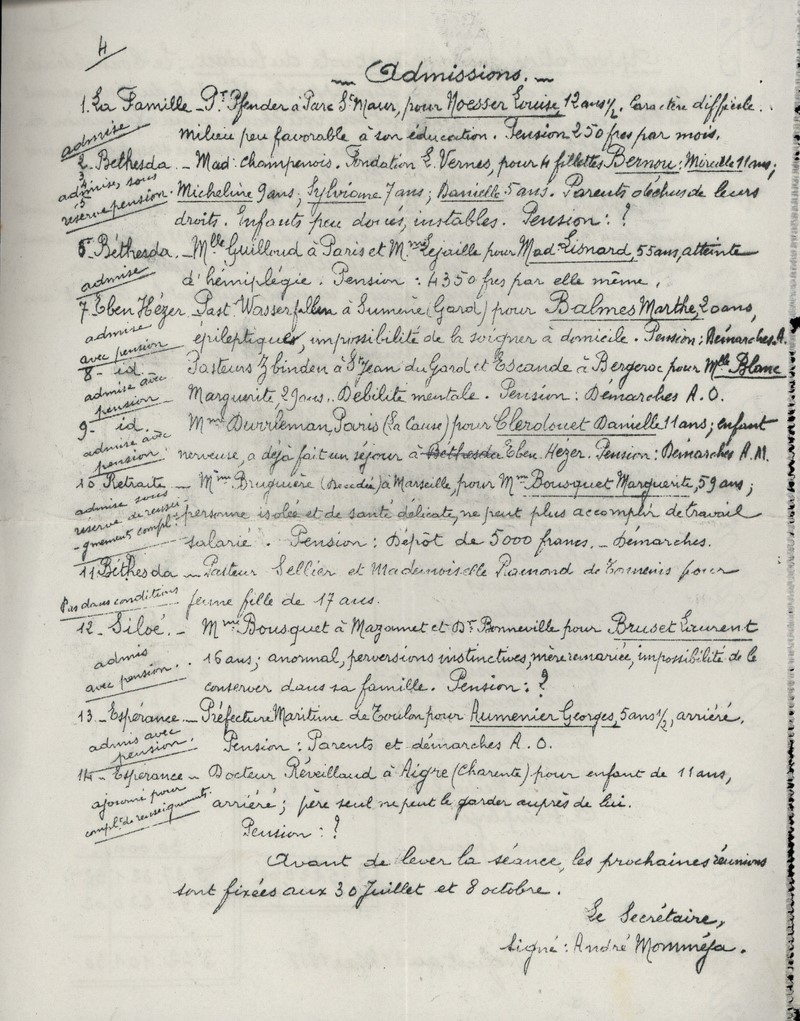 4
Admissions.
1. La Famille - Pr Pfender à Parc St Maur, pour Noesser Louise, 12 ans ½. Caractère difficile.
admise
milieu peu favorable à son éducation. Pension 250 frcs par mois.
2. Béthesda. - Mad. Champenois. Fondation E. Vernes, pour 4 fillettes Bernou: Mireille 11 ans;
3
admises, sous
Micheline 9 ans; Sylviane 7 ans; Danielle 5 ans. Parents déchus de leurs
réserve pension.
droits. Enfants peu doués, instables. Pension: ?
6. Béthesda. - Mlle Guilloud à Paris et Mme Lejaille pour Mad. Lisnard, 55 ans, atteinte
admise
d'hémiplégie. Pension: 4350 frcs par elle même.
7 Eben Hézer. Past. Wasserfallen à Sumène (Gard) pour Balmes Marthe, 20 ans,
admise
épileptique, impossibilité de la soigner à domicile. Pension: Démarches A.
avec pension
8 - id. - Pasteurs Zbinden à St Jean du Gard et Escande à Bergerac pour Mlle Blanc
admise avec
Marguerite, 29 ans. Débilité mentale. Pension: Démarches A. O.
pension
9 - id. - Mme Durrleman, Paris (La Cause) pour Clerdouet Danielle 11 ans; enfant
admise avec
nerveuse, a déjà fait un séjour à Béthesda Eben Hézer. Pension: Démarches A.M.
pension
10 Retraite - Mme Bruguière (Decedée) à Marseille, pour Mme Bousquet Marguerite, 59 ans;
admise sous
personne isolée et de santé délicate, ne peut plus accomplir de travail
réserve de rensei-
gnements compl.
salarié. Pension: Dépôt de 5000 francs. - Démarches.
11 Béthesda - Pasteur Sellier et Mademoiselle Ramond de pour
Pas dans conditions
jeune fille de 17 ans.
12 - Siloé. - Mme Bousquet à Mazamet et Dr Bonneville pour Bruset Laurent
admis
16 ans; anormal, perversions instinctives, mère remariée, impossibilité de le
avec pension.
conserver dans sa famille. Pension: ?
13 - Espérance - Préfecture Maritime de Toulon pour Aumenier Georges, 5 ans ½, arriéré.
admis avec
pension.
Pension: Parents et démarches A. O.
14 - Espérance - Docteur Réveillaud à Aigre (Charente) pour enfant de 11 ans,
ajourné pour
arriéré; père seul ne peut le garder auprès de lui.
complt de renseignements.
Pension: ?
Avant de lever la séance, les prochaines réunions
sont fixées aux 30 Juillet et 8 octobre.
Le Secrétaire,
Signé: André Momméja.